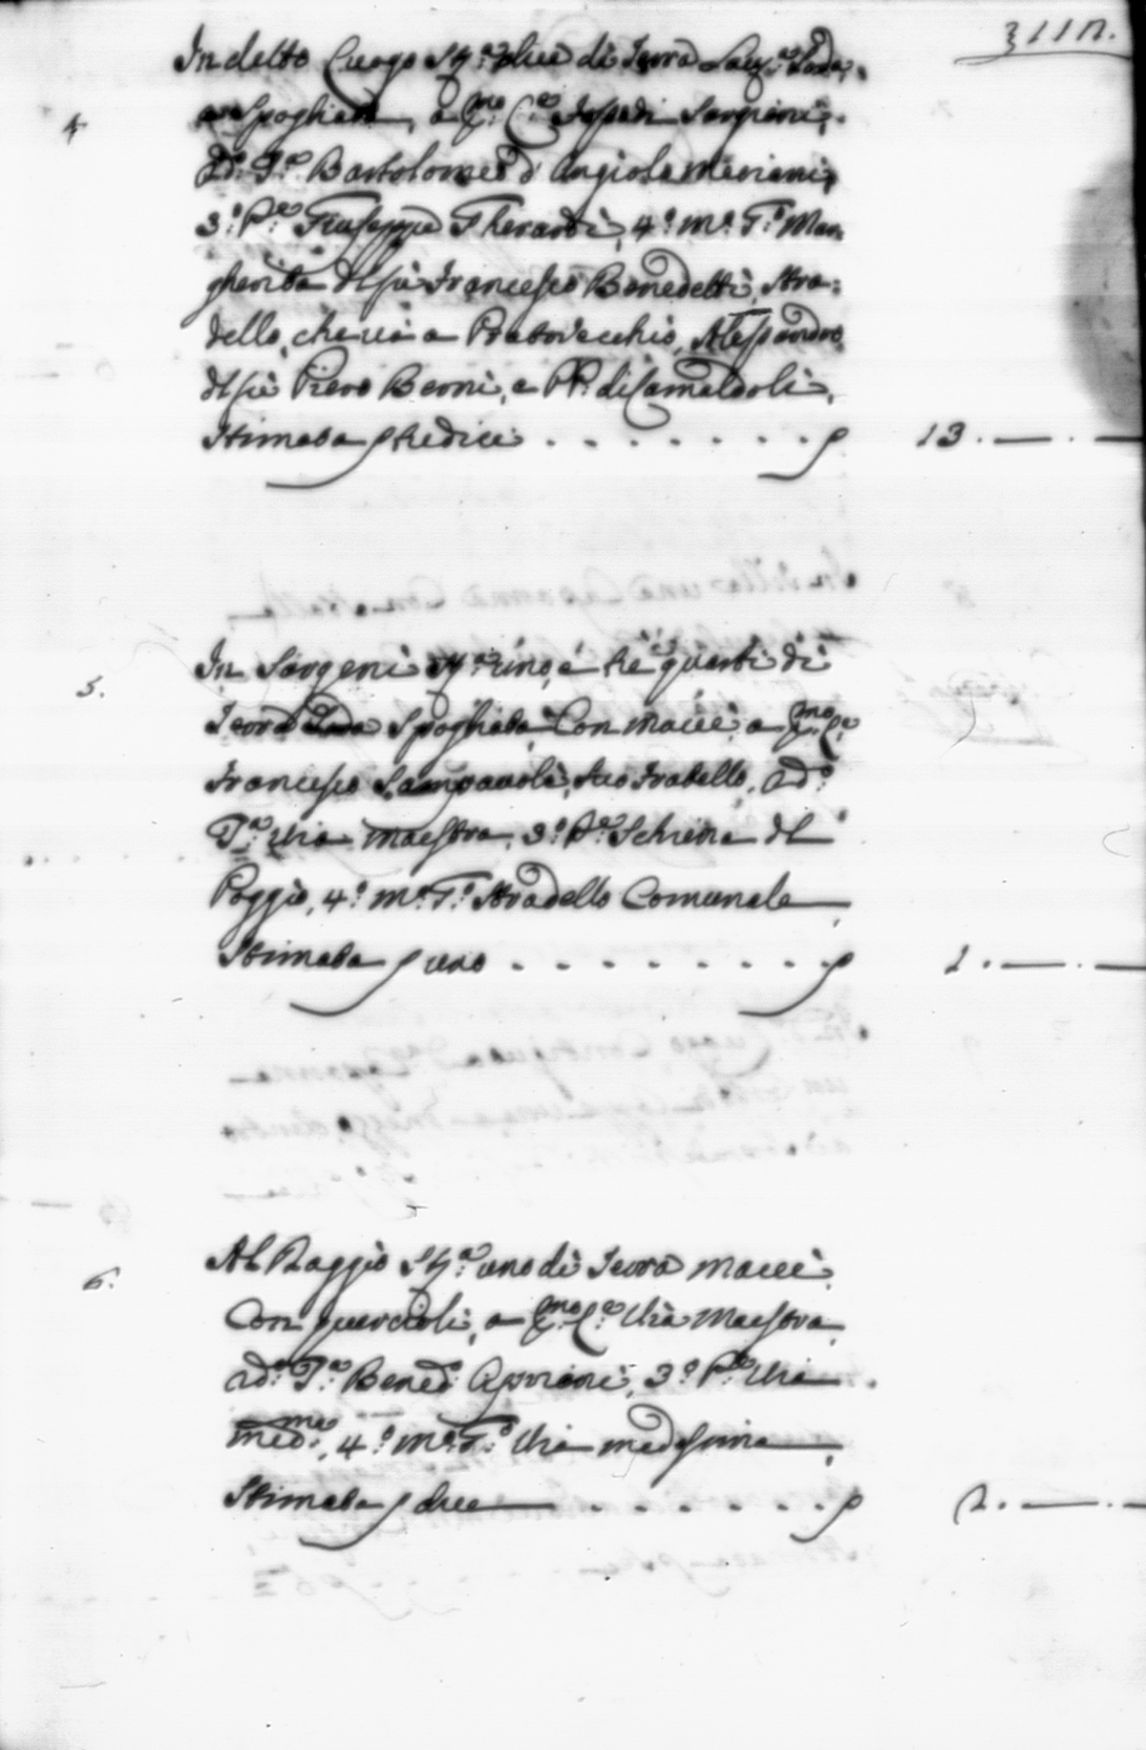 3112.
4 In detto Luogo St.ra dieci di Terra Lav.a Soda,
e Spogliata, a P.mo C.e Sargiani,
2d.o T.o Bartolomeo d'Angiolo Mariani,
3.o P.e Giuseppe Gherardi, 4.o M.o T.o Mar:
gherita del fù Francesco Benedetti, Stra:
dello, che và a Pratovecchio, Alessandro
del fù Piero Berni, e PP. di Camaldoli,
Stimata p tredici . . . . . . . p 13. — . —
5. In Sargeni St.ra uno, e tre quarti di
Terra Soda Spogliata Con macie, a P.mo C.e
Francesco Sampauoli, Suo Fratello, 2d.o
T.o Via Maestra, 3.o P.e Schiena del
Poggio, 4.o M.o T.o Stradello Comunale
Stimata p uno . . . . . . . . p 1. — . —
6. Al Poggio St.ra uno di Terra macie
Con quercioli, a P.mo C.e Via Maestra
2d.o T.o Bened.o Cipriani, 3.o P.e Via
med.ma, 4.o M.o T.o Via medesima
Stimata p due — . . . . . . . p 2. — . —